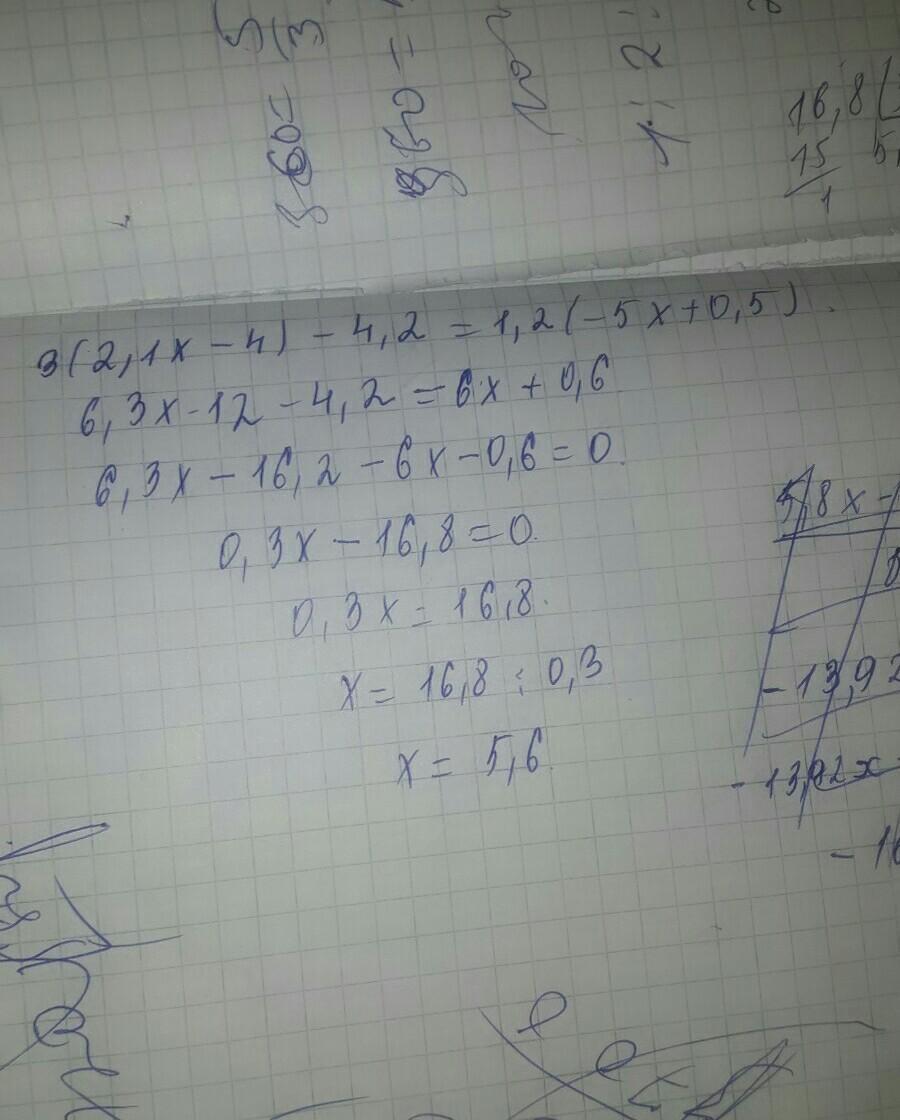 3 60 =
860 =
1: 2:
16,8
15
1
3(2,1x - 4) - 4,2 = 1,2(-5x + 0,5).
6,3x - 12 - 4,2 = 6x + 0,6
6,3x - 16,2 - 6x - 0,6 = 0.
0,3x - 16,8 = 0.
0,3x = 16,8.
x = 16,8 : 0,3
x = 5,6.
5,8x -
- 13,92
- 13,92x
- 16